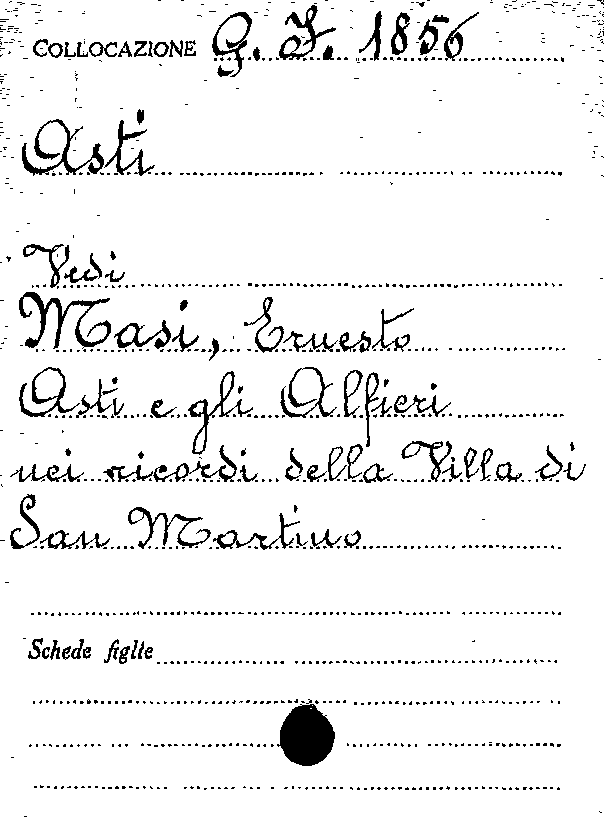 COLLOCAZIONE G. F. 1856
Asti
Vedi
Masi, Ernesto
Asti e gli Alfieri
nei ricordi della Villa di
San Martino
Schede figlie